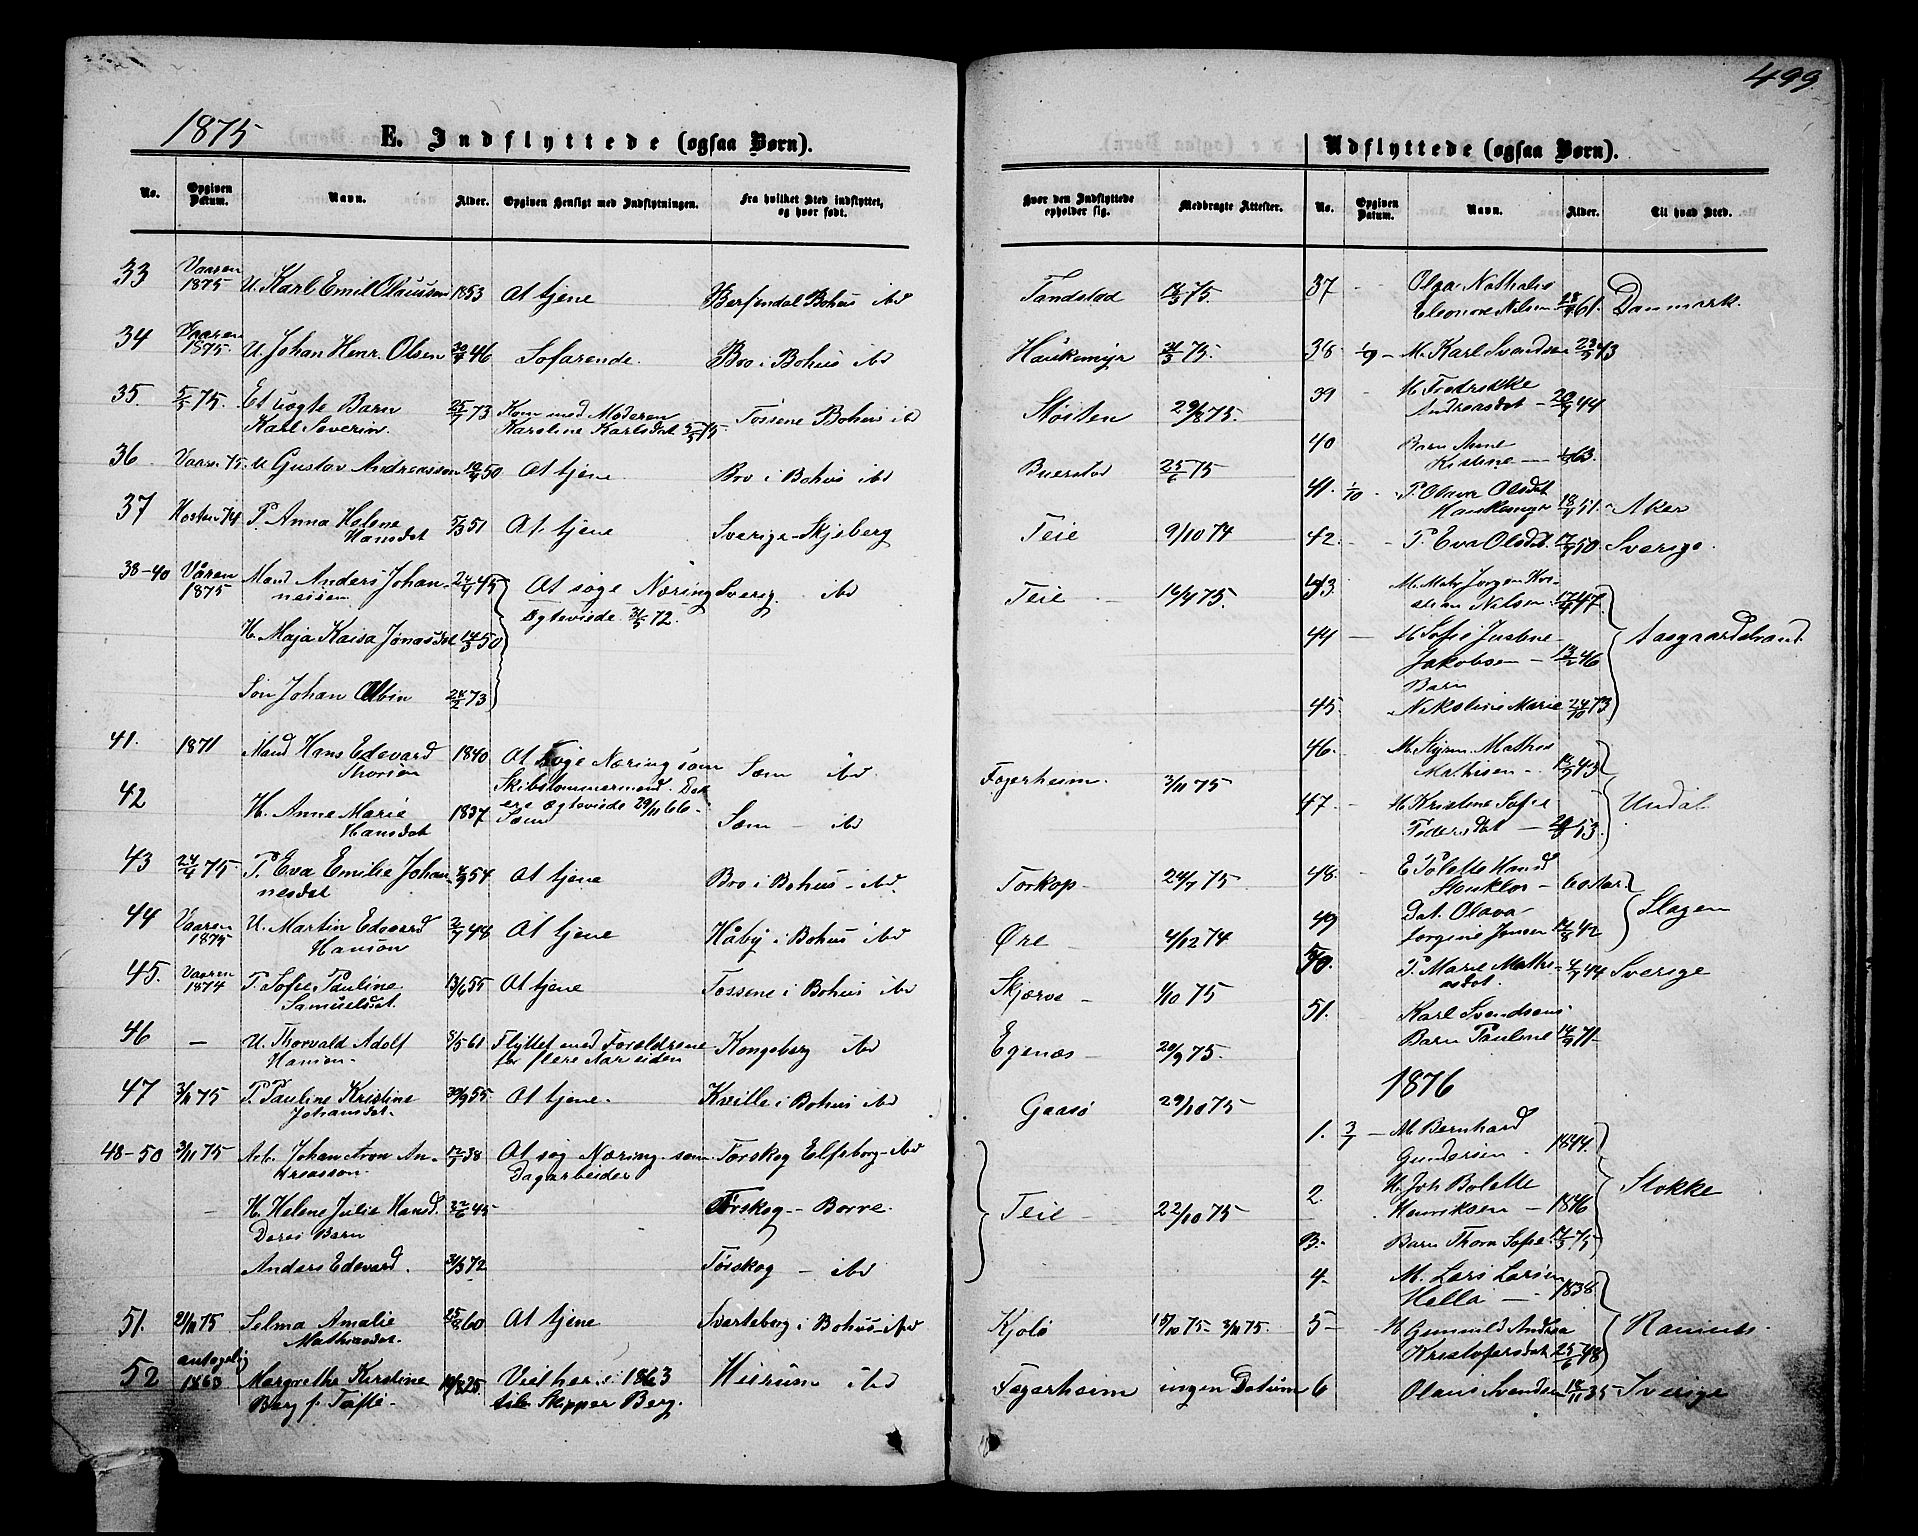 499
1875
E. Indflyttede (ogsaa Børn).
No. Opgiven Datum. Navn. Alder. Opgiven Hensigt med Indflytningen. Fra hvilket Sted indflyttet, og hvor født.
33 Vaaren 1875 U. Karl Emil Olausson 1853 At tjene Bohus ibd
34 Vaaren 1875. U. Johan Henr. Olsen 46 Søfarende. Bro i Bohus ibd
35. 5/5 75. Et uægte Barn
Karl Severin. 25/7 73 Kom med Moderen
Karoline Karlsdat 5/5 75. Tossene Bohus ibd
36 Vaar. 75. U Gustav Andreasson 50 At tjene. Bro i Bohus ibd
37 Høsten 74 P. Anna Helene
Hansdat 51 At tjene Sverige - Skjeberg
38-40 Våren 1875 Mand Anders Johan-
nesen 24/4 45 At søge Næring Sverig. ibd
Ægteviede 72.
H. Maja Kaisa Jonasdat 14/3 50
Søn Johan Albin 24/2 73
41. 1871 Mand Hans Edevard
Thorsen 1840 At søge Næring som
Skibstømmermand. Sem ibd.
42 H. Anne Marie
Hansdat 1837 ægteviede 29/11 66
Sem Sem - ibd
43 24/4 75. P. Eva Emilie Johan-
nesdat 54 At tjene Bro i Bohus - ibd.
44 Vaaren 1875 U. Martin Edevard
Hanson 2/7 48 At tjene Håby i Bohus ibd
45. Vaaren 1874 P. Sofie Pauline
Samuelsdat. 13/6 55 At tjene Tossene i Bohus ibd
46 - U. Thorvald Adolf
Hanson 8/5 61 Flyttet med Forældrene
for flere Aar siden Kongsberg ibd
47 3/11 75 P. Pauline Kristine
Johansdat. 30/9 55 At tjene. Kville i Bohus ibd
48-50 3/11 75 Arb. Johan Aron An-
dreasson. 12/7 38 At søg Næring som
Dagarbeider Torskog Elfsborg - ibd
H. Helene Julie Hansd. 22/6 45 Torskog - Borre.
Deres Barn
Anders Edevard. 72 Torskog - ibd
51. 21/11 75 Selma Amalie
Mathiasdat. 25/8 60 At tjene Svarteborg i Bohus - ibd
52 antagelig 1863 Margrethe Kirstine
Berg f. Tofte. 25. Viet her i 1863
til Skipper Berg. ibd
Hvor den Indflyttede opholder sig. Medbragte Attester.
Tandstad 75.
Haukemyr 75.
Støiten 29/8 75.
Buerstad 25/6 75
Teie 9/10 74
Teie. 16/4 75.
Fagerheim. 3/11 75
Torkop 24/7 75
Øre 4/12 74
Skjærve 1/10 75
Egenæs 20/9 75.
Gaasø 29/10 75
Teie 22/10 75
Kjøle 15/10 75 - 3/11 75.
Fagerheim ingen Datum
Udflyttede (ogsaa Børn).
No. Opgiven Datum. Navn. Alder. Til hvad Sted.
37 Olga Nathalie
Eleonore Nilsen 61. Danmark.
38 1/9 M. Karl Svendsen 23/5 43
39 H. Fredrikke
Andreasdat 44
40 Barn Anne
Kristine 63.
41. 1/10 P. Olava Olsdat
Haukemyr 51. Aker
42. P. Eva Olsdat. 50. Sverige.
43 Jørgen
Nilsen 47
44 H. Sofie Justine
Jakobsen 13/2 46 Aasgaardstrand
45. Barn
Nikoline Marie 24/10 73
46. M. Styrm. Mathias
Mathisen 43
47. H. Kristine Sofie
Pedersdat 53. Undal
48. 60 aar.
49 Dat. Olava
Jorgine Jensen 42 Slagen
50. P. Marie Mathi-
asdat. 44 Sverige
51. Karl Svendsens
Barn Pauline 14/9 71
1876
1. 3/7 M Bernhard
Gundersen 1844.
2. H. Joh Bolette
Henriksen 1846 Stokke
3. Barn Thora Sofie 75
4. M. Lars Larsen
Hella 1838
5 H. Gunnild Andrea
Kristofersdat 25/6 48 Ramnæs.
6 Olaus Svendsen 18/11 35 Sverige